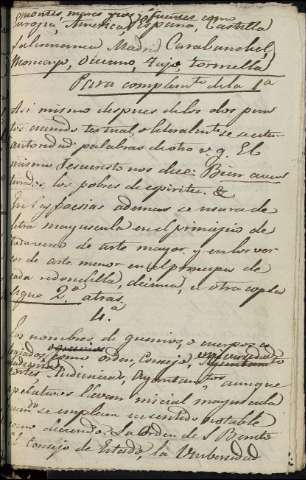 montes, mares, rios,
Europa America, España, Castilla
Salamanca Madrid Carabanchel,
Moncayo, Oceano, Tajo, Tormes
Para complemto. de la 1ª
Asi mismo despues de los dos puntos
cuando textual, o literalmte. se citan
autoridad, palabras de otro v. g. El
mismo Jesucristo nos dice: Bien aven
turados los pobres de espiritu. &
En las poesias ademas se usara de
letra mayuscula en el principio de
cada verso de arte mayor, y en los ver
sos de arte menor en el principio de
cada redondilla, decima, u otra copla
Sigue 2ª atras.
4.ª
Los nombres de gremios, o cuerpos
como orden, Consejo, universidad
Audiencia, Ayuntamto. aunque
apelativos llevan inicial mayuscula
cuando se emplean en sentido notable
como diciendo. La Orden de S. Benito
el Consejo de Estado, la Universidad